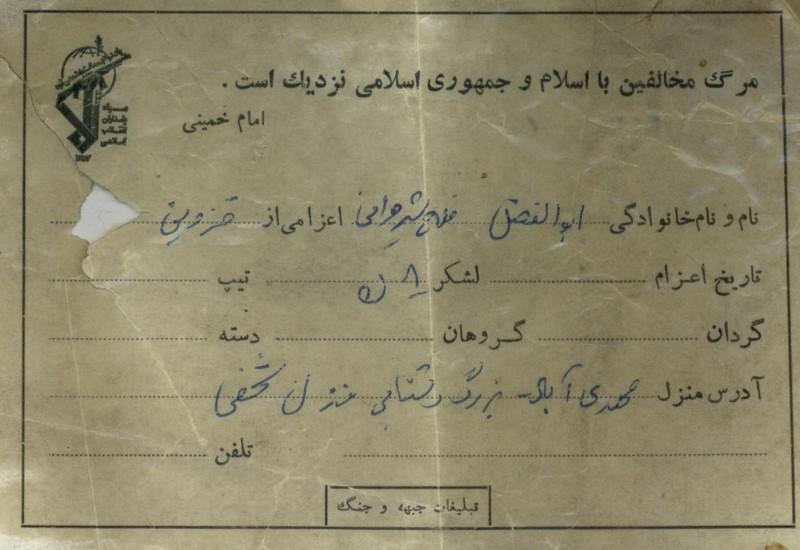 مرگ مخالفین با اسلام و جمهوری اسلامی نزدیك است .
امام خمینی
سپاه پاسداران انقلاب اسلامی
نام و نام‌خانوادگی ابوالفضل اعزامی از قزوین
تاریخ اعزام لشکر ۸ تیپ
گردان گروهان دسته
آدرس منزل بزرگ منزل شخصی
تلفن
تبلیغات جبهه و جنگ